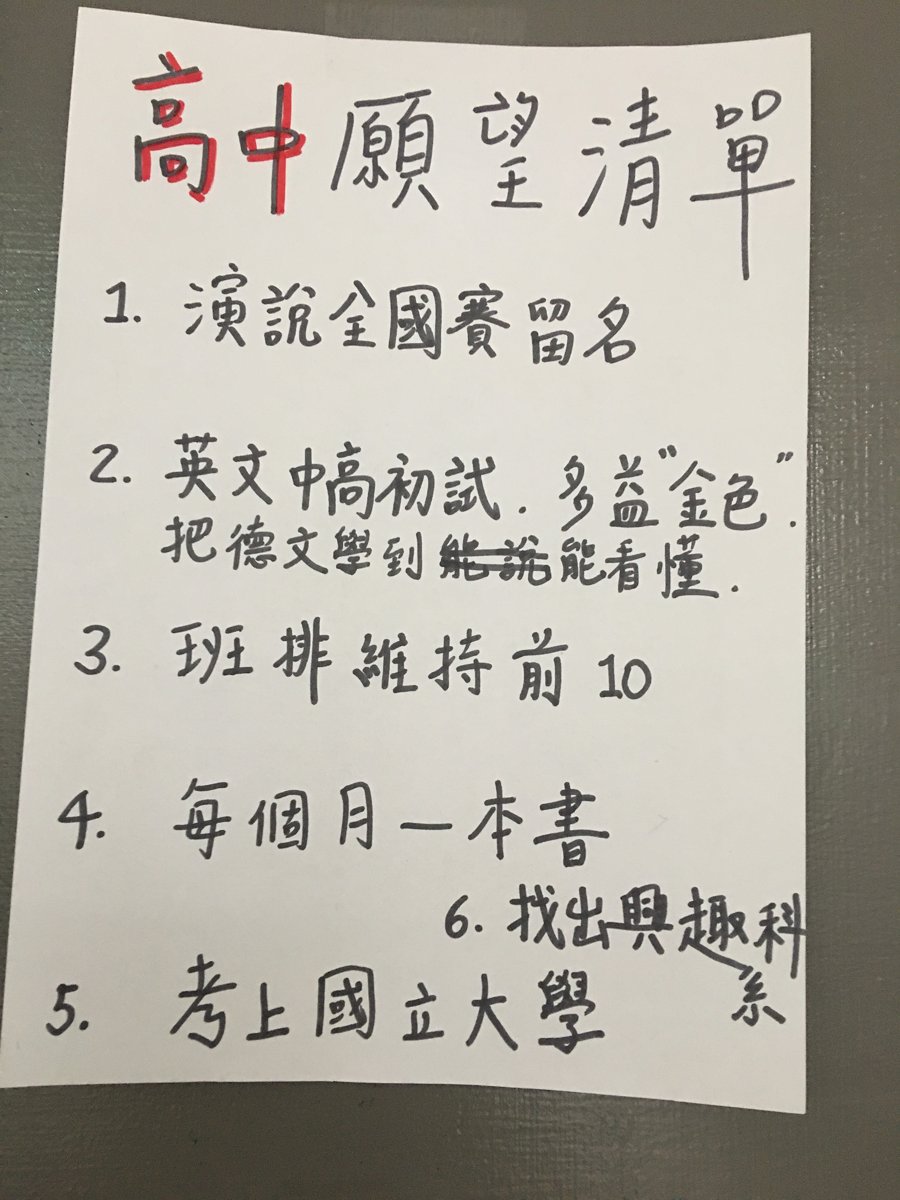 高中願望清單
1. 演說全國賽留名
2. 英文中高初試. 多益"金色".
把德文學到能說能看懂.
3. 班排維持前10
4. 每個月一本書
6. 找出興趣科系
5. 考上國立大學